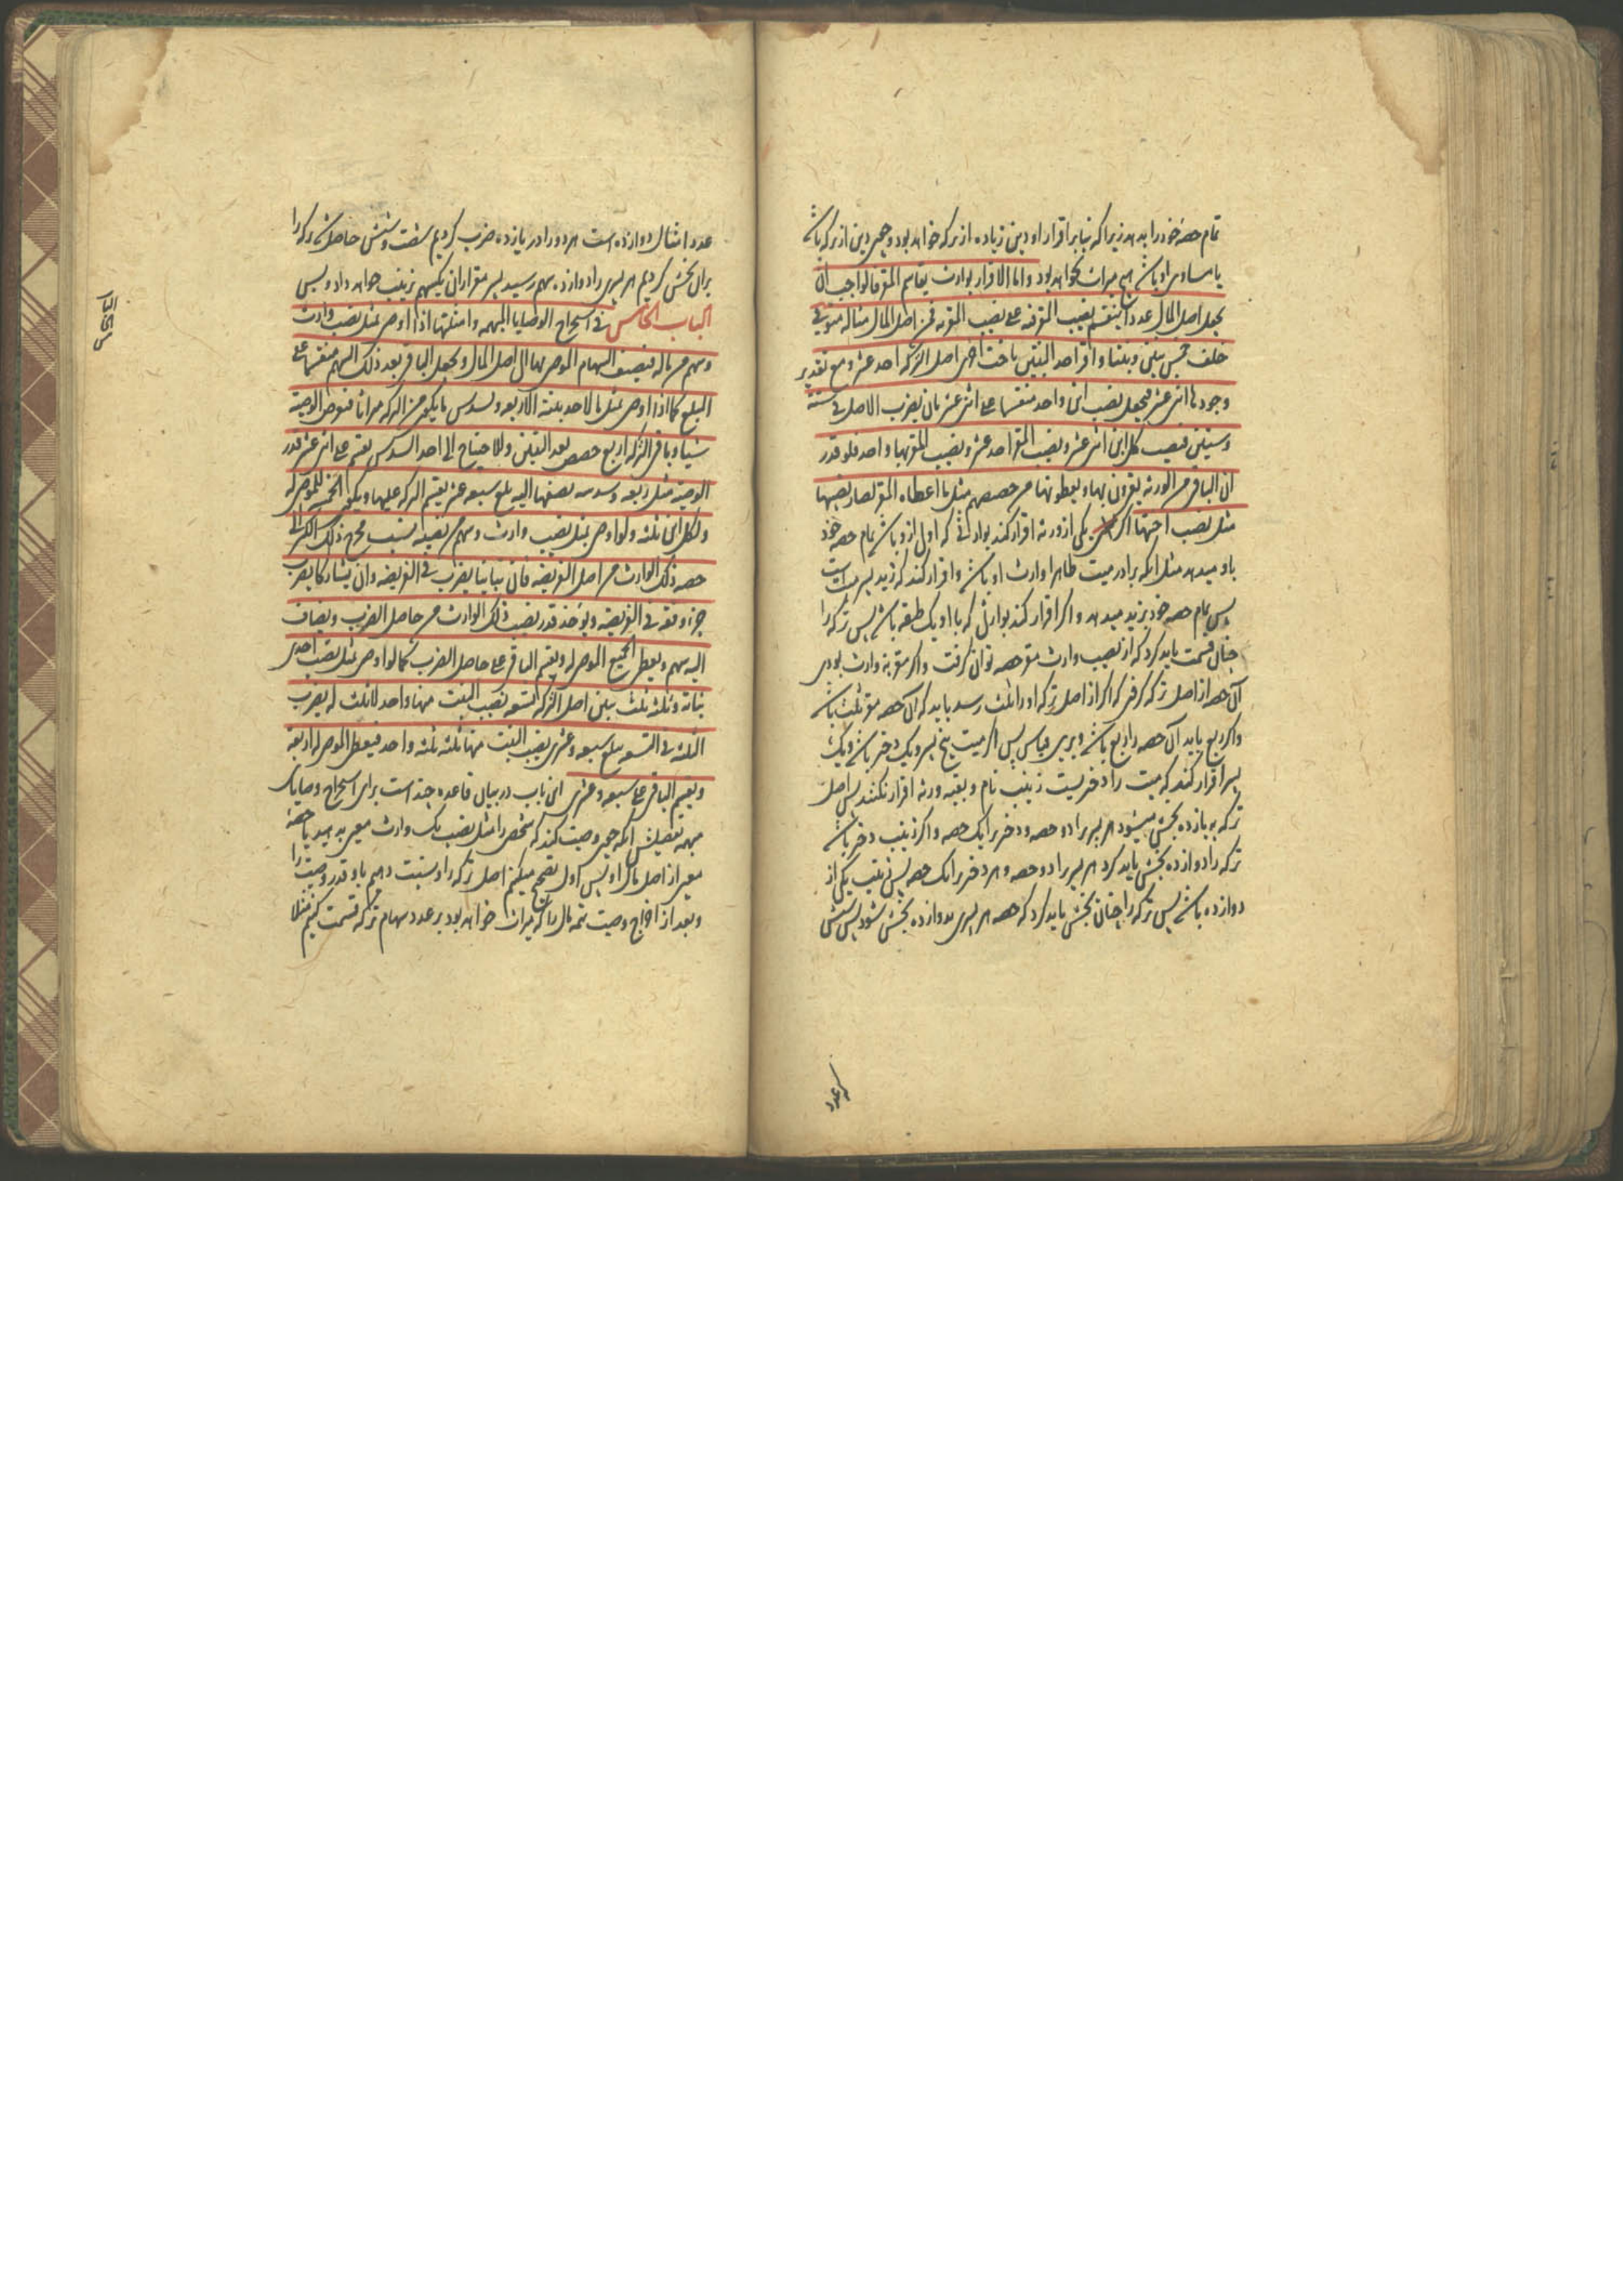 تمام حصه خود را بدهد زیرا که بنابر اقرار او دین زیاده از ترکه خواهد بود و چون دین از ترکه باشد
یا مساوی او باشد هیچ میراث نخواهد بود و اما الاقرار بوارث یقاسم المقر فالواجب ان
یجعل اصل المال عددا ینقسم نصیب المقر منه علی نصیب المقر به فی اصل المال مثاله متوفی
خلف خمس بنین و بنتا و اقر احد البنین باخت اخری اصل الترکه احد عشر و مع تقدیر
وجودها اثنی عشر فیجعل نصیب ابن واحد منقسما علی اثنی عشر بان یضرب الاصل فی ستة
وستین فنصیب کل ابن اثنی عشر و نصیب المقر احد عشر و نصیب المقر بها واحد فلو قدر
ان الباقی من الورثه یقرون بها و یعطونها من حصصهم مثل ما اعطاه المقر لصار نصیبها
مثل نصیب اختها اکر یکی از ورثه اقرار کند بوارثی که اولی ازو باشد تمام حصه خود
باو میدهد مثل انکه برادر میت ظاهرا وارث او باشد و اقرار کند که زید پسر میت است
پس تمام حصه خود بزید میدهد و اکر اقرار کند بوارثی که با او یک طبقه باشد پس ترکه را
چنان قسمت باید کرد که از نصیب وارث مقر حصه توان کرفت و اکر مقر به وارث بودی
آن حصه از اصل ترکه کرفتی که اکر از اصل ترکه او را ثلث رسد باید که آن حصه مقر ثلث باشد
و اکر ربع باید آن حصه را ربع باشد و برین قیاس پس اکر میت پنج پسر و یک دختر باشد و یک
پسر اقرار کند که میت را دختریست زینب نام و بقیه ورثه اقرار نکنند پس اصل
ترکه به یازده بخش میشود هر پسر را دو حصه و دختر را یک حصه و اکر زینب دختر باشد
ترکه را دوازده بخش باید کرد هر پسر را دو حصه و هر دختر را یک حصه پس زینب یکی از
دوازده باشد پس ترکه را چنان بخش باید کرد که حصه هر پسری بدوازده بخش شود پس شش
عدد
عدد امثال دوازده است هر دو را در یازده ضرب کردیم شصت و شش حاصل شد ترکه را
بران بخش کردیم هر پسری را دوازده سهم رسید پسر مقر ازان یکسهم بزینب خواهد داد و بس
الباب الخامس فی استخراج الوصایا المبهمه و امثلتها اذا اوصی بمثل نصیب وارث
و سهم من ماله فیضیف السهام الموصی بها الی اصل المال و یجعل الباقی بعد ذلک السهم منقسما علی
المبلغ کما اذا اوصی بمثل ما لاحد بنیه الاربعه و لسدس ما یکون من الترکه میراثا فنفرض الوصیة
شیئا و باقی الترکه اربع حصص بعدد البنین و للاحتیاج الی اخذ السدس یقسم علی اثنی عشر قدر
الوصیة مثل ربعه و سدسه یضفها الیه یبلغ سبعه عشر یقسم الترکه علیها و یکون الخمسة للموصی له
و لکل ابن ثلثه و لو اوصی بمثل نصیب وارث و سهم من نصیبه نسب مخرج ذلک الکسر الی
حصه ذلک الوارث من اصل الفریضه فان تباینا یضرب فی الفریضه و ان یشارکا یضرب
جزء وفقه فی الفریضه و یؤخذ قدر نصیب ذلک الوارث من حاصل الضرب و یضاف
الیه سهم و یعطی الجمیع الموصی له و یقسم الباقی علی حاصل الضرب کما لو اوصی بمثل نصیب احدی
بناته و ثلثه ثلث بنین اصل الترکه التسعه نصیب البنت منها واحد لا ثلث له یضرب
الثلثه فی التسعه یبلغ سبعه و عشرین نصیب البنت منها ثلثه ثلثه واحد فیعطی الموصی له اربعة
و یقسم الباقی علی سبعه و عشرین این باب در بیان قاعده چند است برای استخراج وصایای
مبهمه تفصیلش انکه چون وصیت کند که شخصی را مثل نصیب یک وارث معین بدهید یا حصه
معین از اصل مال او پس اول تصحیح میکنیم اصل ترکه را و نسبت دهیم باو قدر وصیت را
و بعد از اخراج وصیت تتمه مال را که میراث خواهد بود بر عدد سهام ترکه قسمت کنیم مثلا
الباب
الخامس